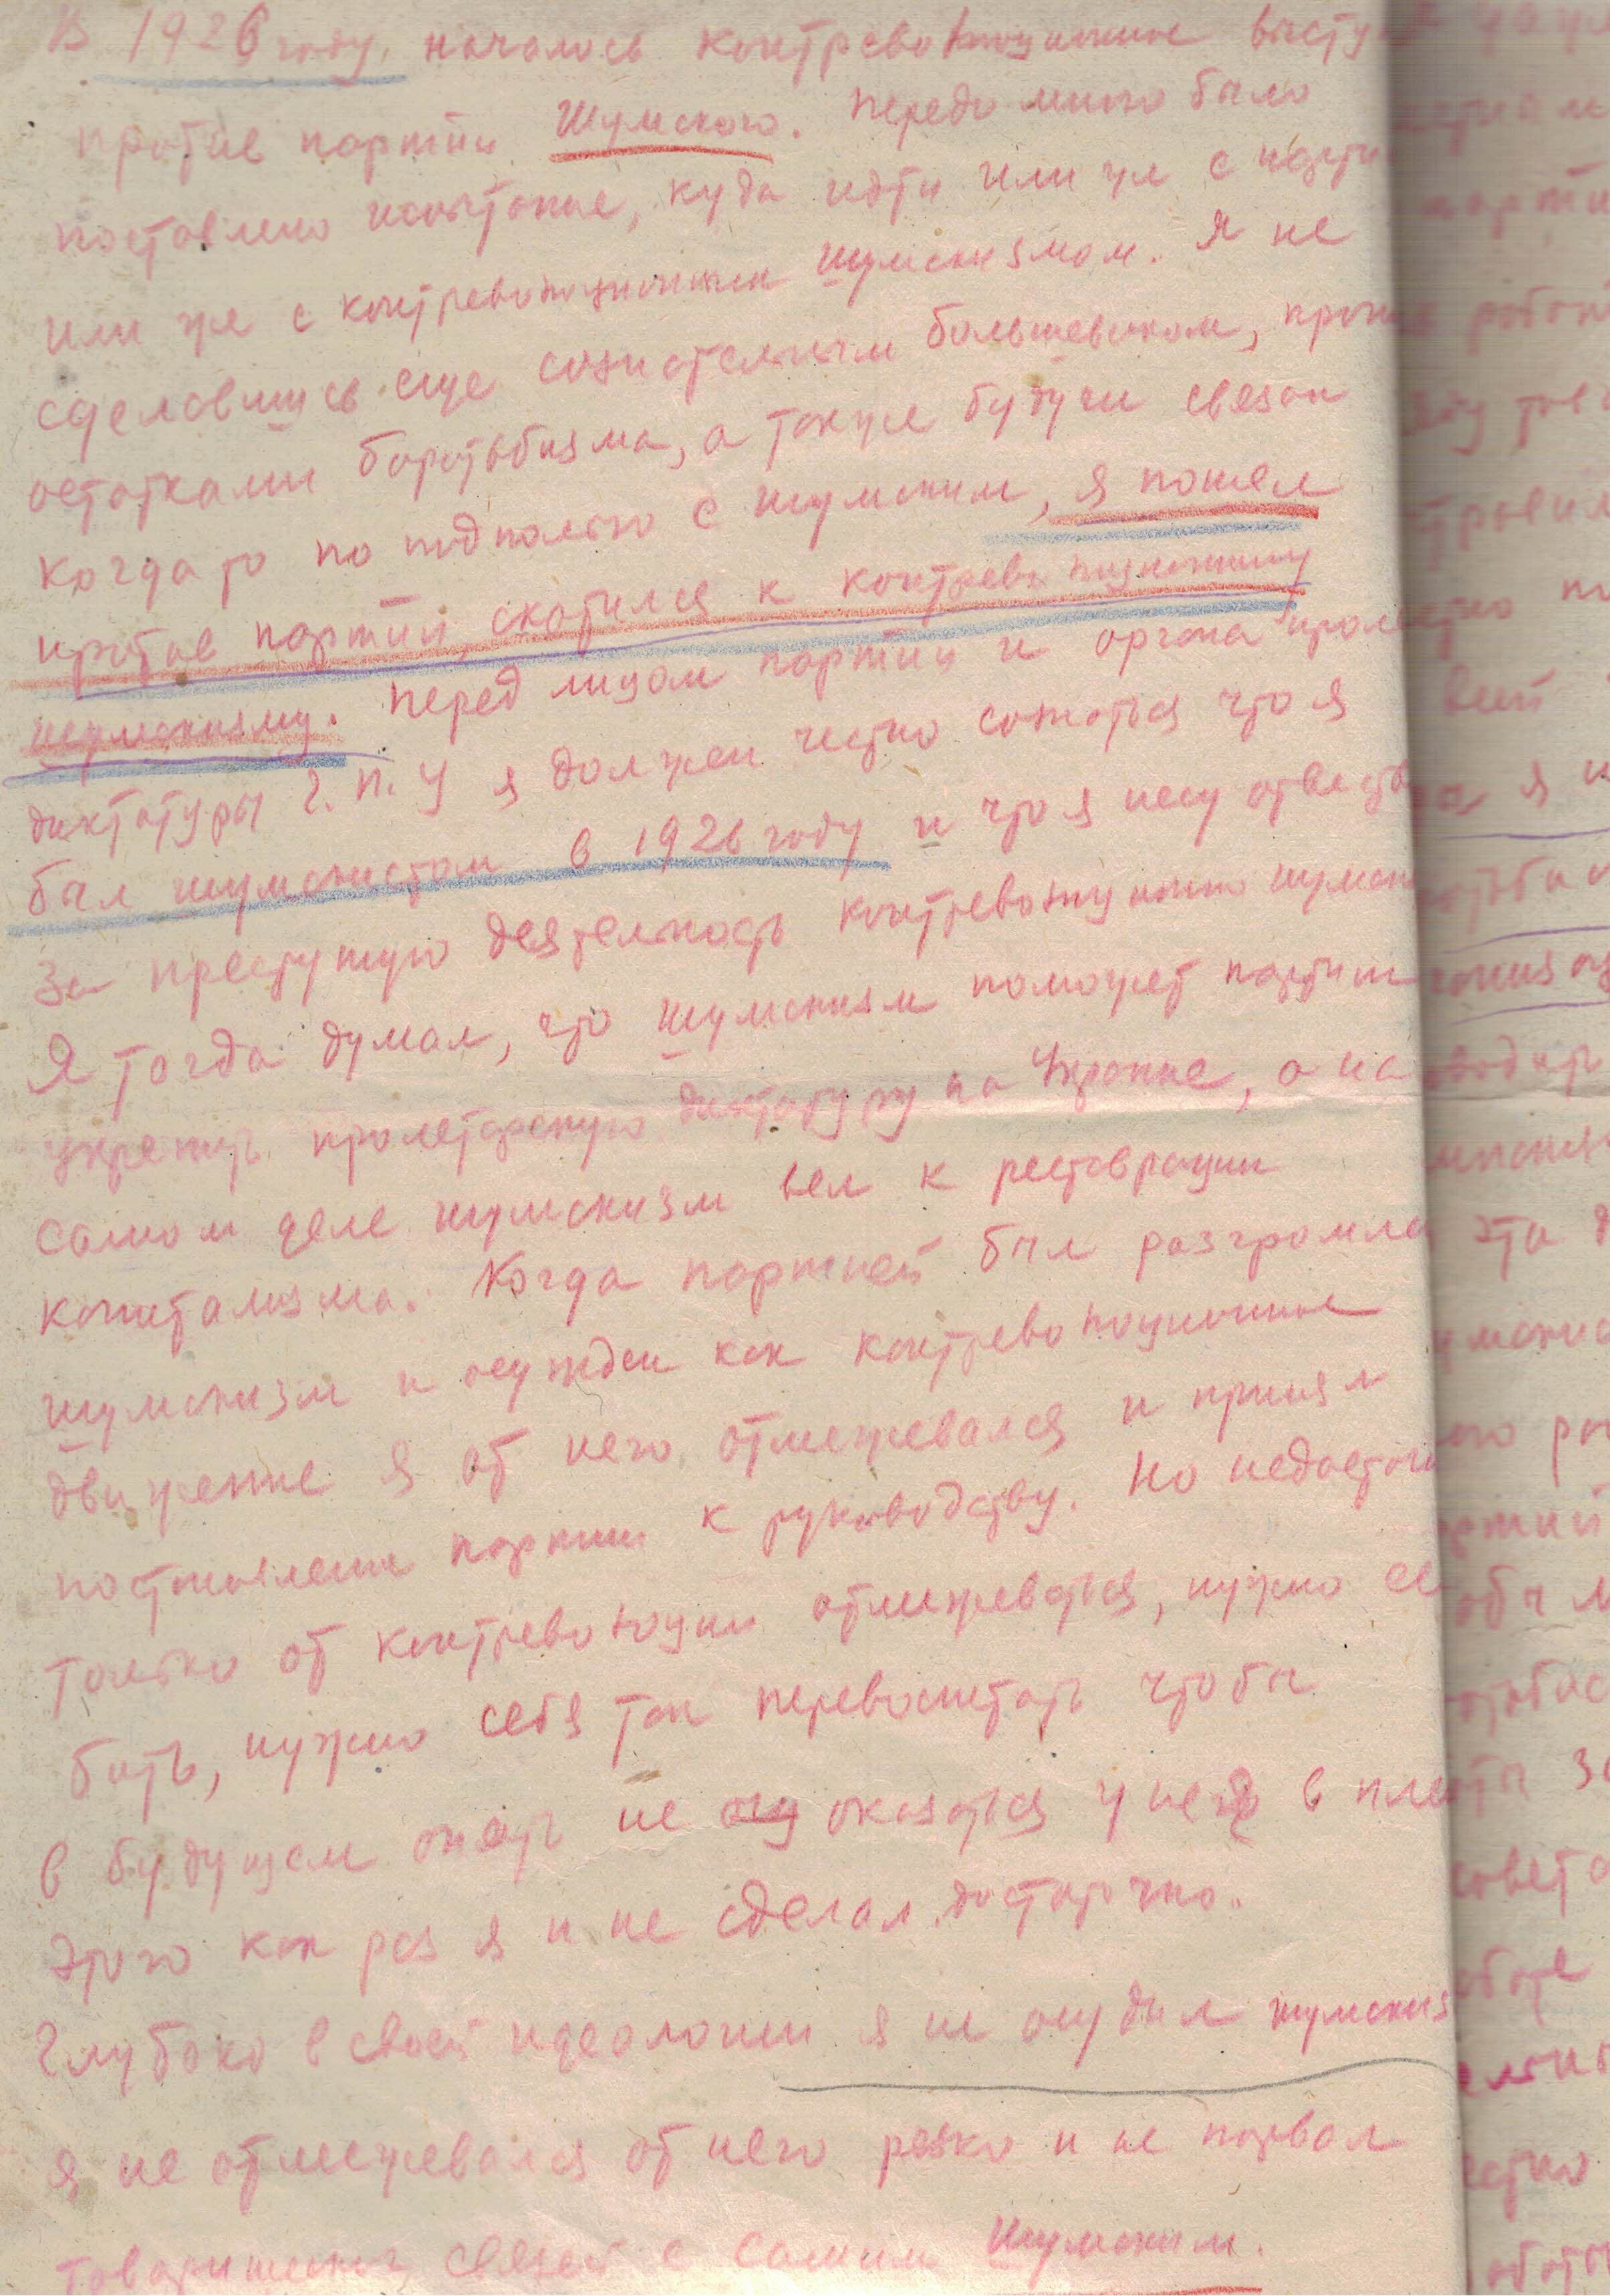 В 1926 году, началось контреволюционное высту
против партии Шумского. Передо мною было
поставлено испытание, куда идти или же с парти
или же с контревопюционным шумскизмом. Я не
сделавшись еще сознательным большевиком,
остатками боротьбизма, а также будучи связан
когда то по подполью с шумским, я пошел
против партии, скатился к контревопюционному
шумскизму. Перед лицом партии и органа пролет
диктатуры Г.П.У я должен честно сознаться что я
был шумскистом в 1926 году и что я несу ответств
за преступную деятельность контревопюционно шумски
Я тогда думал, что шумскизм поможет партии
укрепить пролетарскую диктатуру на Украине, а на
самом деле шумскизм вел к реставрации
капитализма. Когда партией был разгромле
шумскизм и осужден как контревопюционное
движение я от него отмежевался и принял
постановление партии к руководству. Но недостато
только от контревопюции отмежеваться, нужно ее
бить, нужно себя так перевоспитать чтобы
в будущем опять не оказаться у нея в пле
Этого как раз я и не сделал достаточно.
Глубоко в своей идеологии я не осудил шумскиз
я не отмежевался от него резко и не порвал
товарищеских связей с самим Шумским.